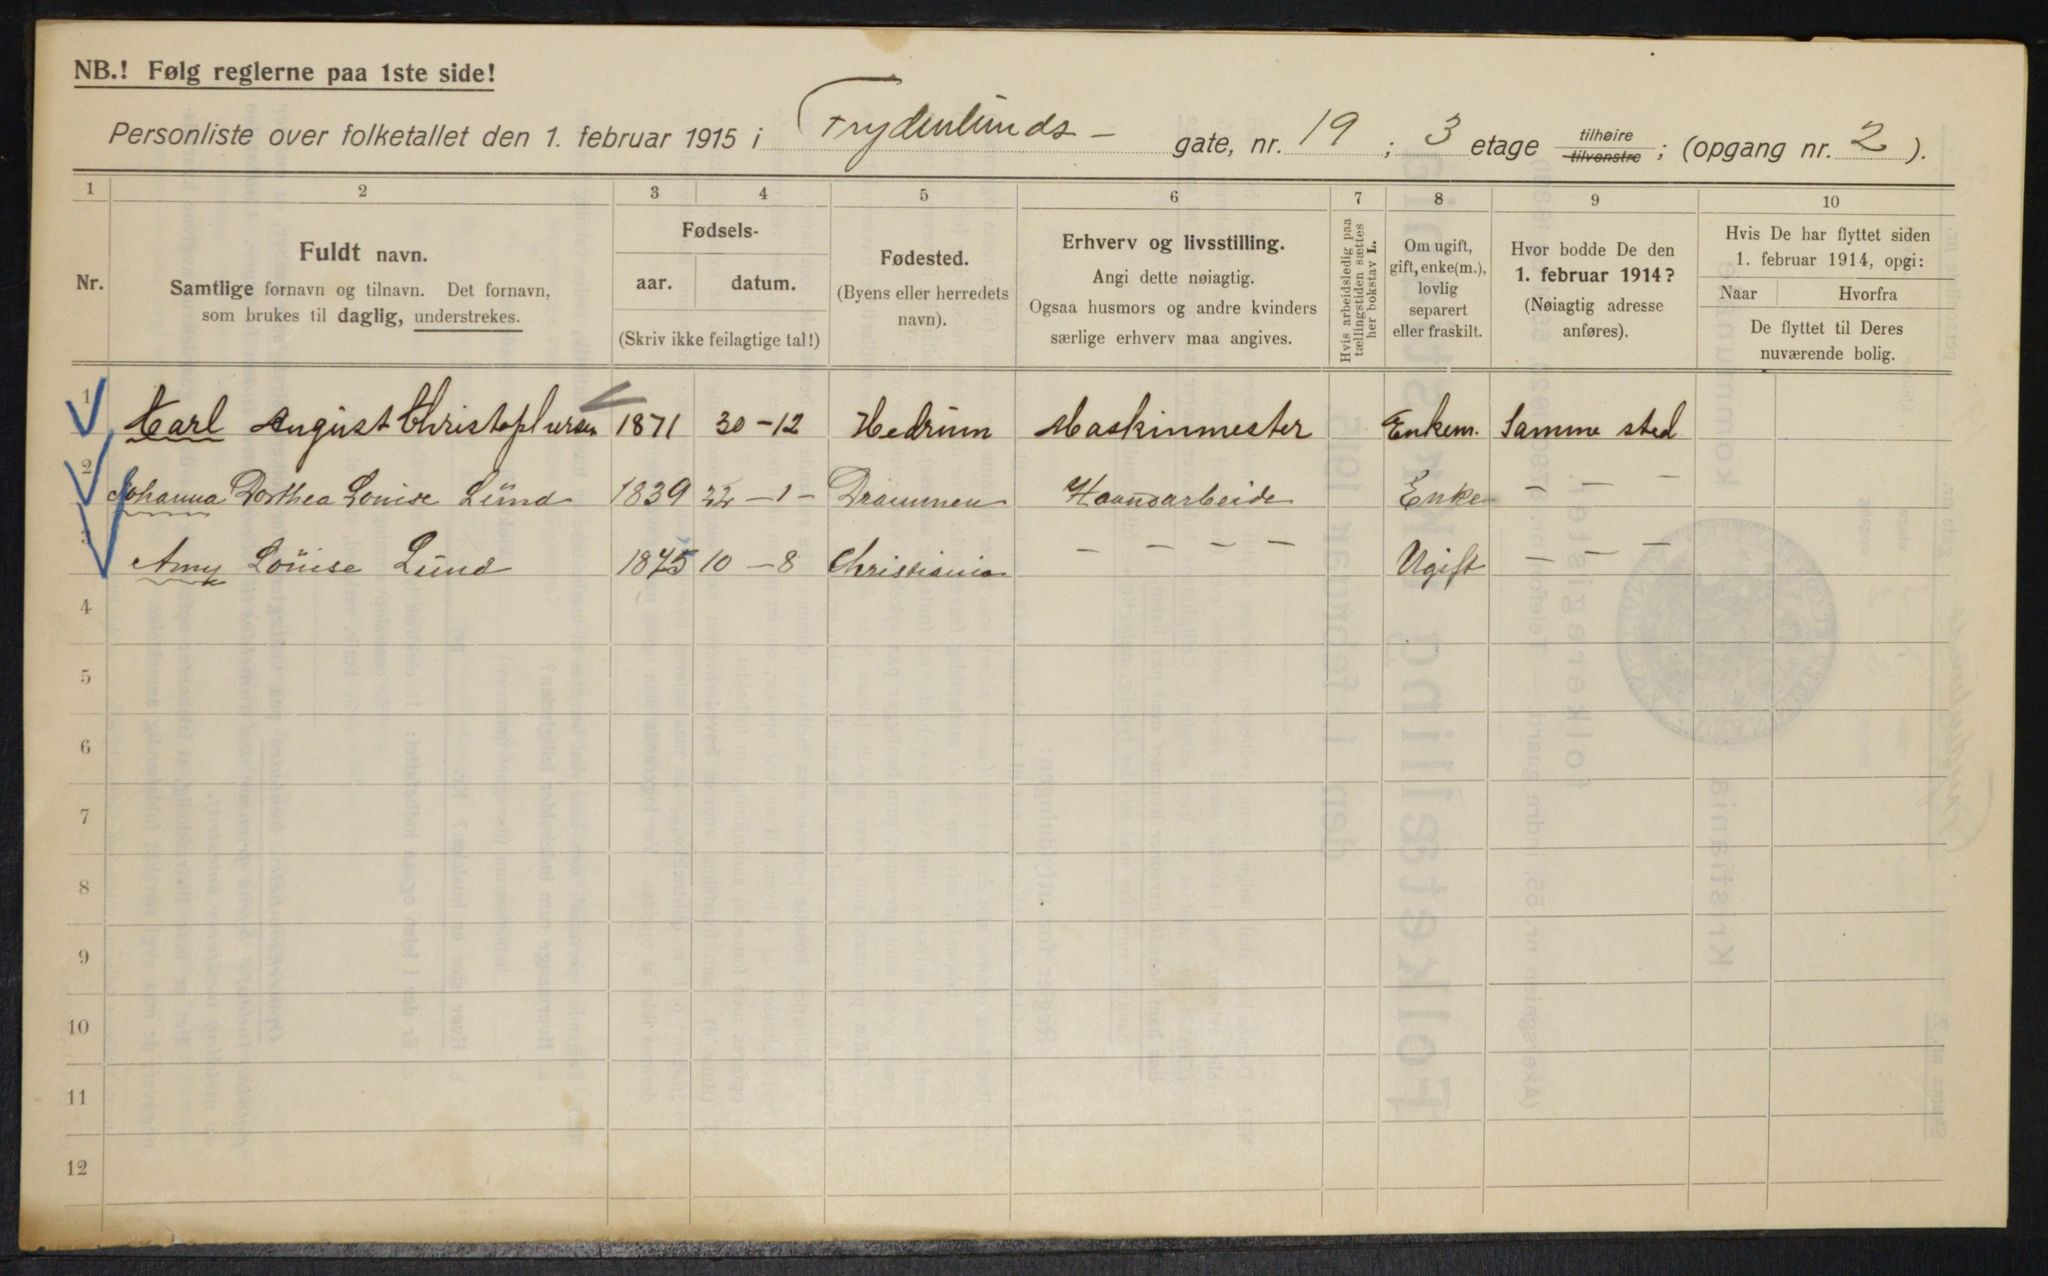 NB.! Følg reglerne paa 1ste side!
Personliste over folketallet den 1. februar 1915 i Frydenlunds- gate, nr. 19 ; 3 etage tilhøire tilvenstre ; (opgang nr. 2 ).
1 2 3 4 5 6 7 8 9 10
Nr.
Fuldt navn.
Samtlige fornavn og tilnavn. Det fornavn,
som brukes til daglig, understrekes.
Fødsels-
aar. datum.
(Skriv ikke feilagtige tal!)
Fødested.
(Byens eller herredets
navn).
Erhverv og livsstilling.
Angi dette nøiagtig.
Ogsaa husmors og andre kvinders
særlige erhverv maa angives.
Hvis arbeidsledig paa
tællingstiden sættes
her bokstav L.
Om ugift,
gift, enke(m.),
lovlig
separert
eller fraskilt.
Hvor bodde De den
1. februar 1914?
(Nøiagtig adresse
anføres).
Hvis De har flyttet siden
1. februar 1914, opgi:
Naar Hvorfra
De flyttet til Deres
nuværende bolig.
1 Karl August Christophersen 1871 30-12 Hedrum Maskinmester Enkem. Samme sted
2 Johanna Dorthea Louise Lund 1839 22-1- Drammen Haandarbeide Enke - - -
3 Amy Louise Lund 1875 10-8 Christiania - - - - Ugift - - -
4
5
6
7
8
9
10
11
12